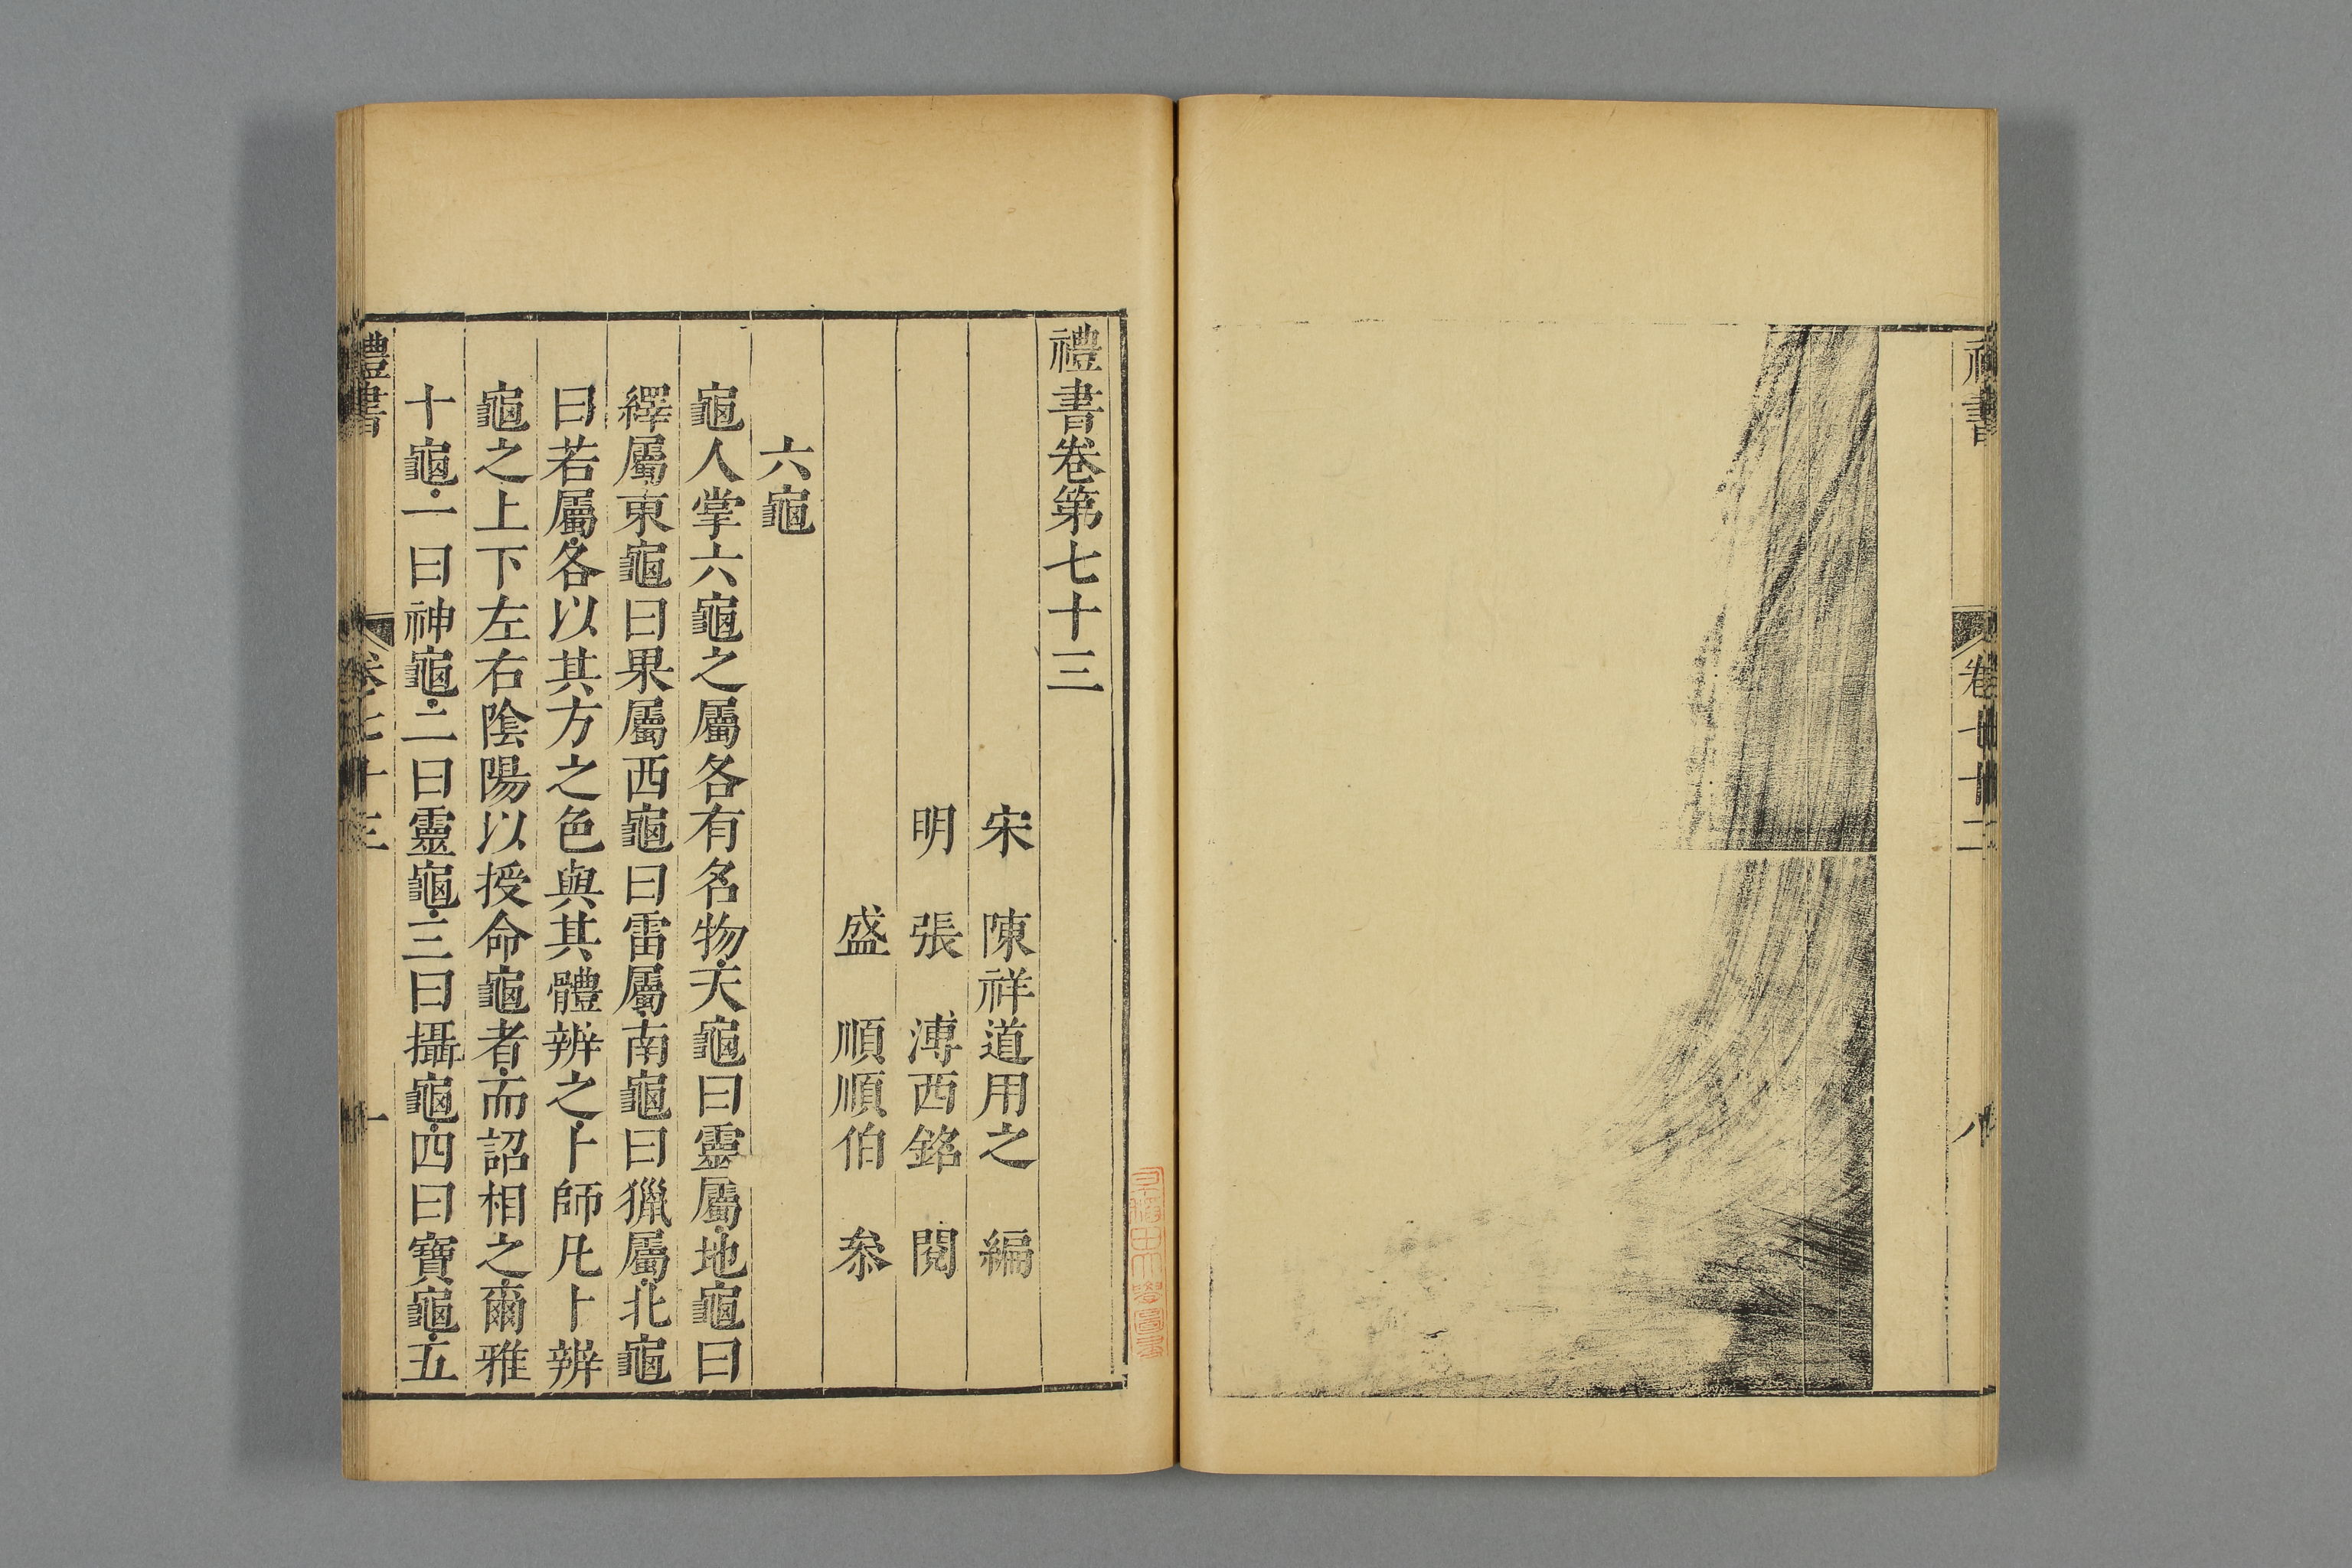 禮書
卷七十二
八
禮書卷第七十三
宋　陳祥道用之　編
明　張　溥西銘　閱
盛　順順伯　叅
六龜
龜人掌六龜之屬各有名物天龜曰靈屬地龜曰
繹屬東龜曰果屬西龜曰雷屬南龜曰獵屬北龜
曰若屬各以其方之色與其體辨之卜師凡卜辨
龜之上下左右陰陽以授命龜者而詔相之爾雅
十龜一曰神龜二曰靈龜三曰攝龜四曰寶龜五
禮書
卷七十三
一